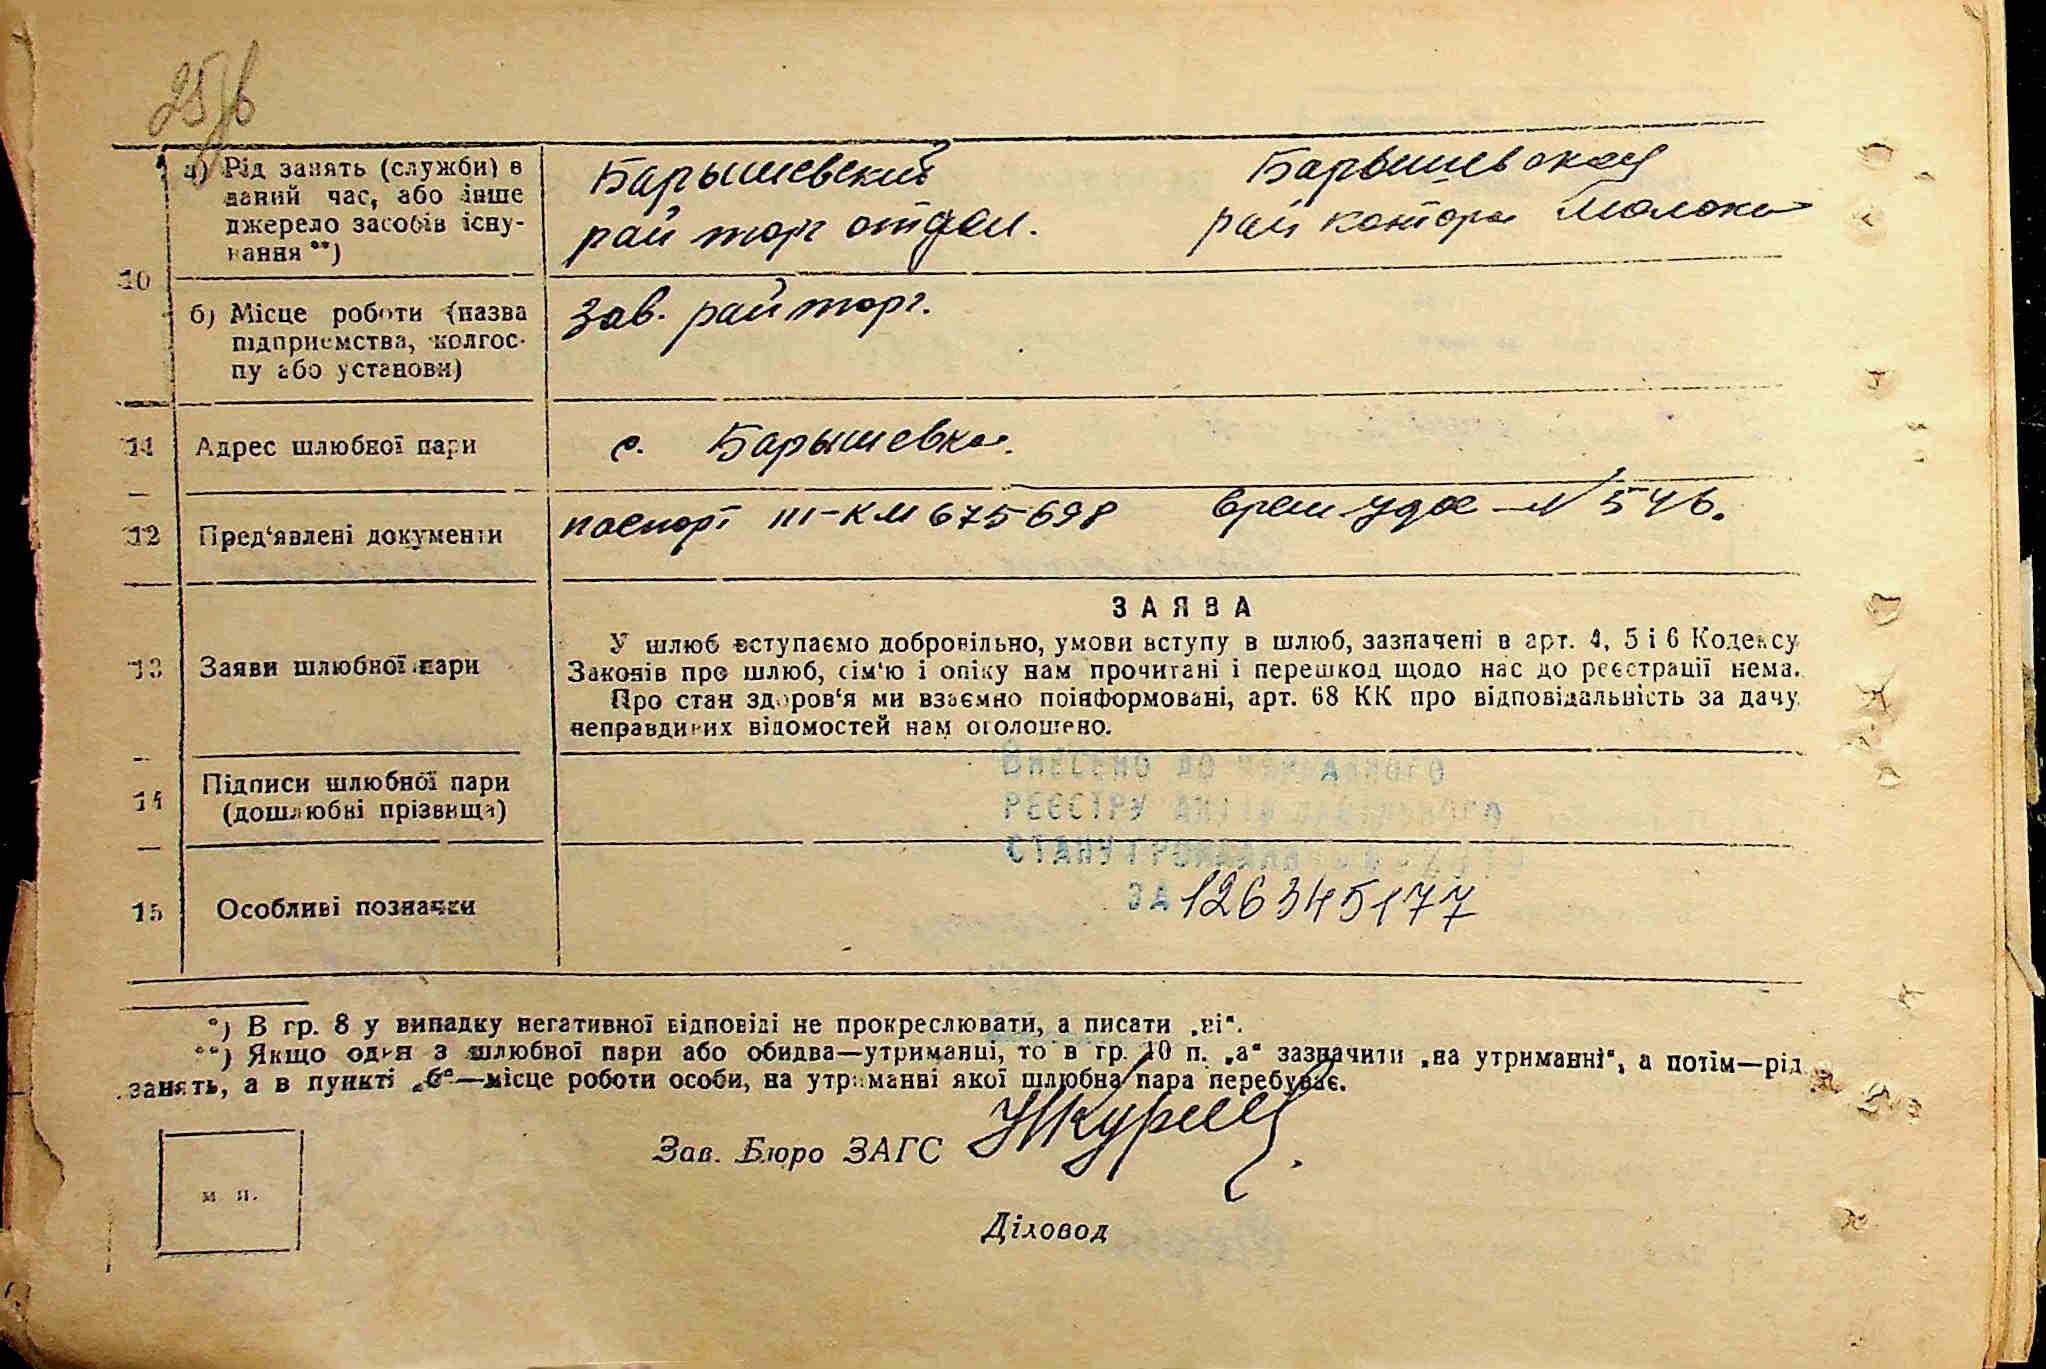 а) Рід занять (служби) в
даний час, або інше
джерело засобів існу-
вання **)
Барышевский
рай торг отдел.
Барышевская
рай контора Молоко
10
б) Місце роботи (назва
підприємства, колгос-
пу або установи)
Зав. райторг.
11 Адрес шлюбної пари
с. Барышевка.
12 Пред'явлені документи
паспорт III-КМ 675698
врем удос № 546.
13 Заяви шлюбної пари
ЗАЯВА
У шлюб вступаємо добровільно, умови вступу в шлюб, зазначені в арт. 4, 5 і 6 Кодексу
Законів про шлюб, сім'ю і опіку нам прочитані і перешкод щодо нас до реєстрації нема.
Про стан здоров'я ми взаємно поінформовані, арт. 68 КК про відповідальність за дачу
неправдивих відомостей нам оголошено.
14 Підписи шлюбної пари
(дошлюбні прізвища)
Внесено до
РЕЄСТРУ АКТІВ
СТАНУ ГРОМАДЯН
15 Особливі позначки
ЗА 126345177
*) В гр. 8 у випадку негативної відповіді не прокреслювати, а писати „ні".
**) Якщо один з шлюбної пари або обидва—утриманці, то в гр. 10 п. „а" зазначити „на утриманні", а потім—рід
занять, а в пункті „б"—місце роботи особи, на утриманні якої шлюбна пара перебуває.
Зав. Бюро ЗАГС
м п.
Діловод